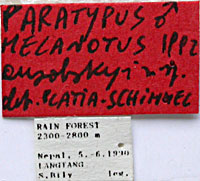 PARATYPUS ♂
MELANOTUS 1992
det. PLATIA-SCHIMMEL
RAIN FOREST
2300-2800 m
Nepal, 5.-6.1990
LANGTANG
S.Bily leg.